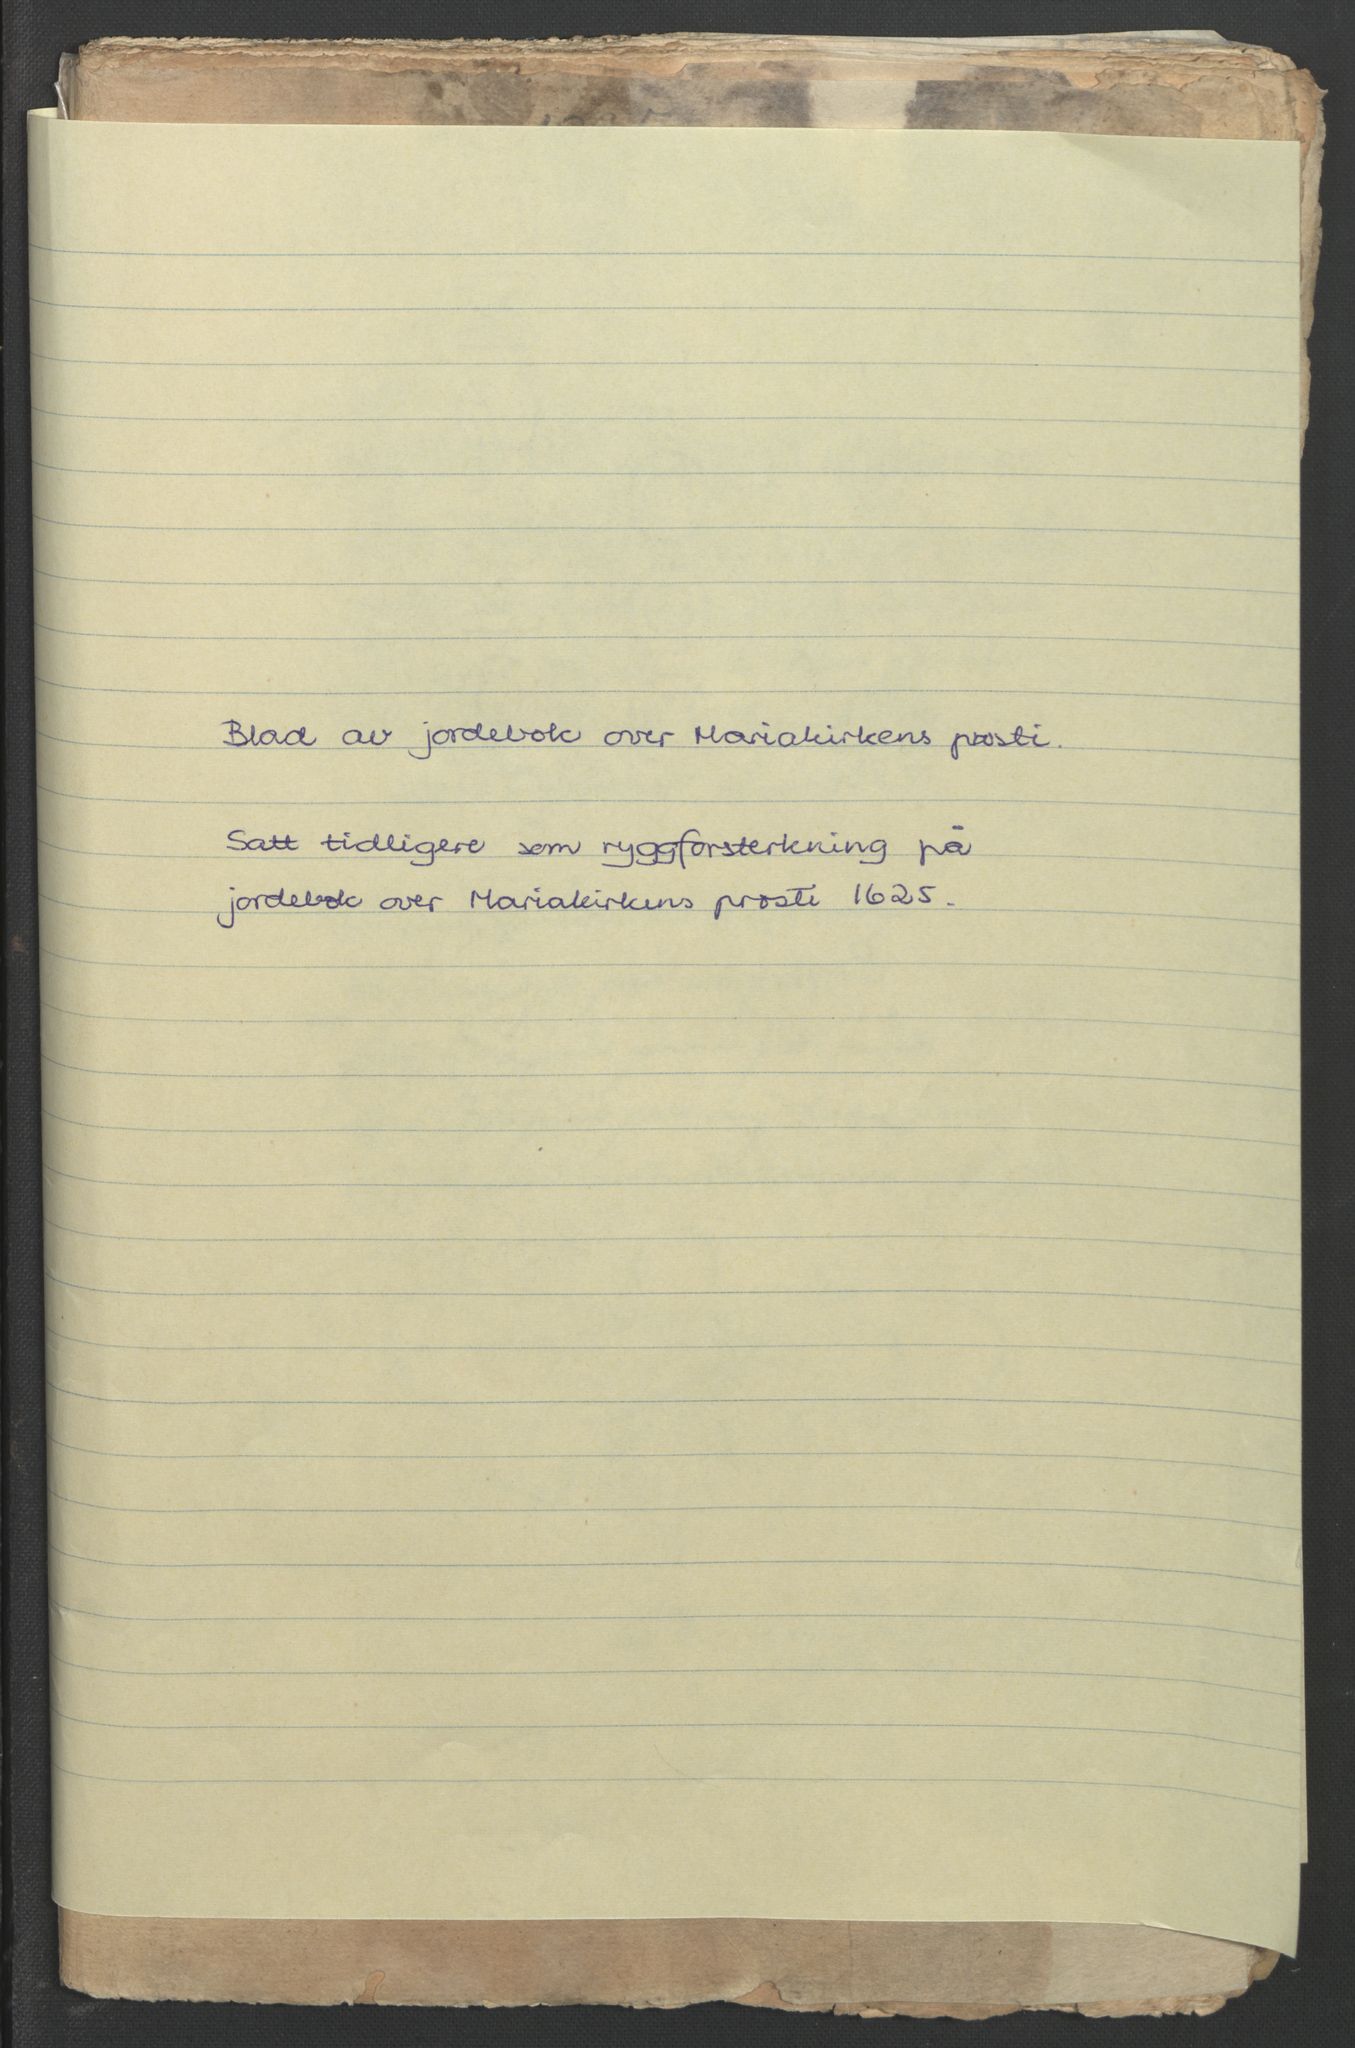 Blad av jordebok over Mariakirkens prosti.
Satt tidligere som ryggforsterkning på
jordebok over Mariakirkens prosti 1625.